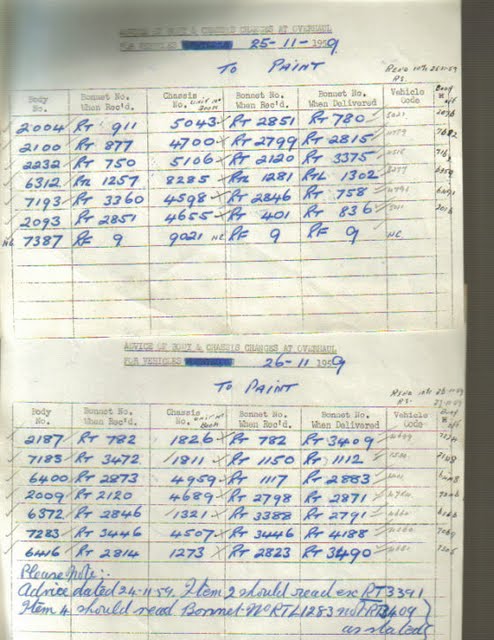 ADVICE OF BODY & CHASSIS CHANGES AT OVERHAUL
FOR VEHICLES 25-11-1959
TO PAINT
Body No. Bonnet No. When Rec'd. Chassis No. Unit No Book Bonnet No. When Rec'd. Bonnet No. When Delivered Vehicle Code Body
2004 RT 911 5043 RT 2851 RT 780
2100 RT 877 4700 RT 2799 RT 2815
2232 RT 750 5106 RT 2120 RT 3375
6312 RTL 1257 8285 RTL 1281 RTL 1302
7193 RT 3360 4598 RT 2846 RT 758
2093 RT 2851 4655 RT 401 RT 836
NC 7387 RF 9 9021 NC RF 9 RF 9 NC
ADVICE OF BODY & CHASSIS CHANGES AT OVERHAUL
FOR VEHICLES 26-11 1959
TO PAINT
Body No. Bonnet No. When Rec'd. Chassis No. Unit No Book Bonnet No. When Rec'd. Bonnet No. When Delivered Vehicle Code Body
2187 RT 782 1826 RT 782 RT 3409
7183 RT 3472 1811 RT 1150 RT 1112
6400 RT 2873 4959 RT 1117 RT 2883
2009 RT 2120 4689 RT 2798 RT 2871
6372 RT 2846 1321 RT 3388 RT 2791
7283 RT 3446 4507 RT 3446 RT 4188
6416 RT 2814 1273 RT 2823 RT 3490
Please Note:-
Advice dated 24-11-59. Item 2 should read ex RT3391
Item 4 should read Bonnet No RTL1283 not RT3409
as stated